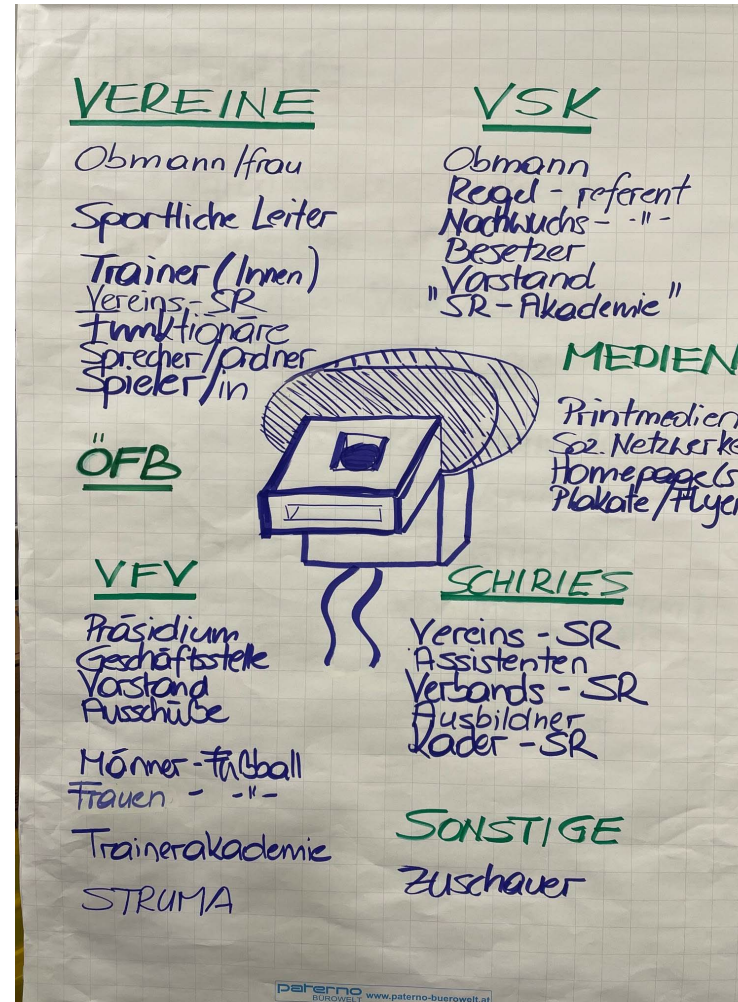 VEREINE
Obmann/frau
Sportliche Leiter
Trainer (Innen)
Vereins-SR
Funktionäre
Sprecher/Ordner
Spieler/in
ÖFB
VFV
Präsidium
Geschäftsstelle
Vorstand
Ausschüße
Männer-Fußball
Frauen - -"-
Trainerakademie
STRUMA
VSK
Obmann
Regel - referent
Nachwuchs- -"-
Besetzer
Vorstand
"SR-Akademie"
MEDIEN
Printmedien
Soz. Netzwerke
Homepage(s
Plakate/Flyer
SCHIRIES
Vereins - SR
Assistenten
Verbands - SR
Ausbildner
Kader - SR
SONSTIGE
Zuschauer
paterno
BÜROWELT www.paterno-buerowelt.at